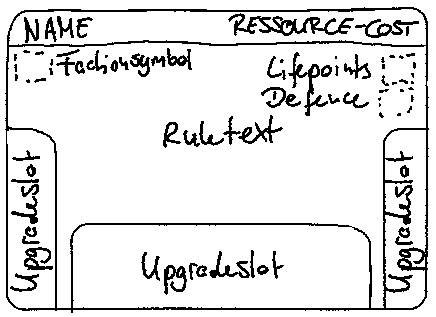 NAME RESSOURCE-COST
Factionsymbol Lifepoints
Defence
Ruletext
Upgradeslot
Upgradeslot
Upgradeslot